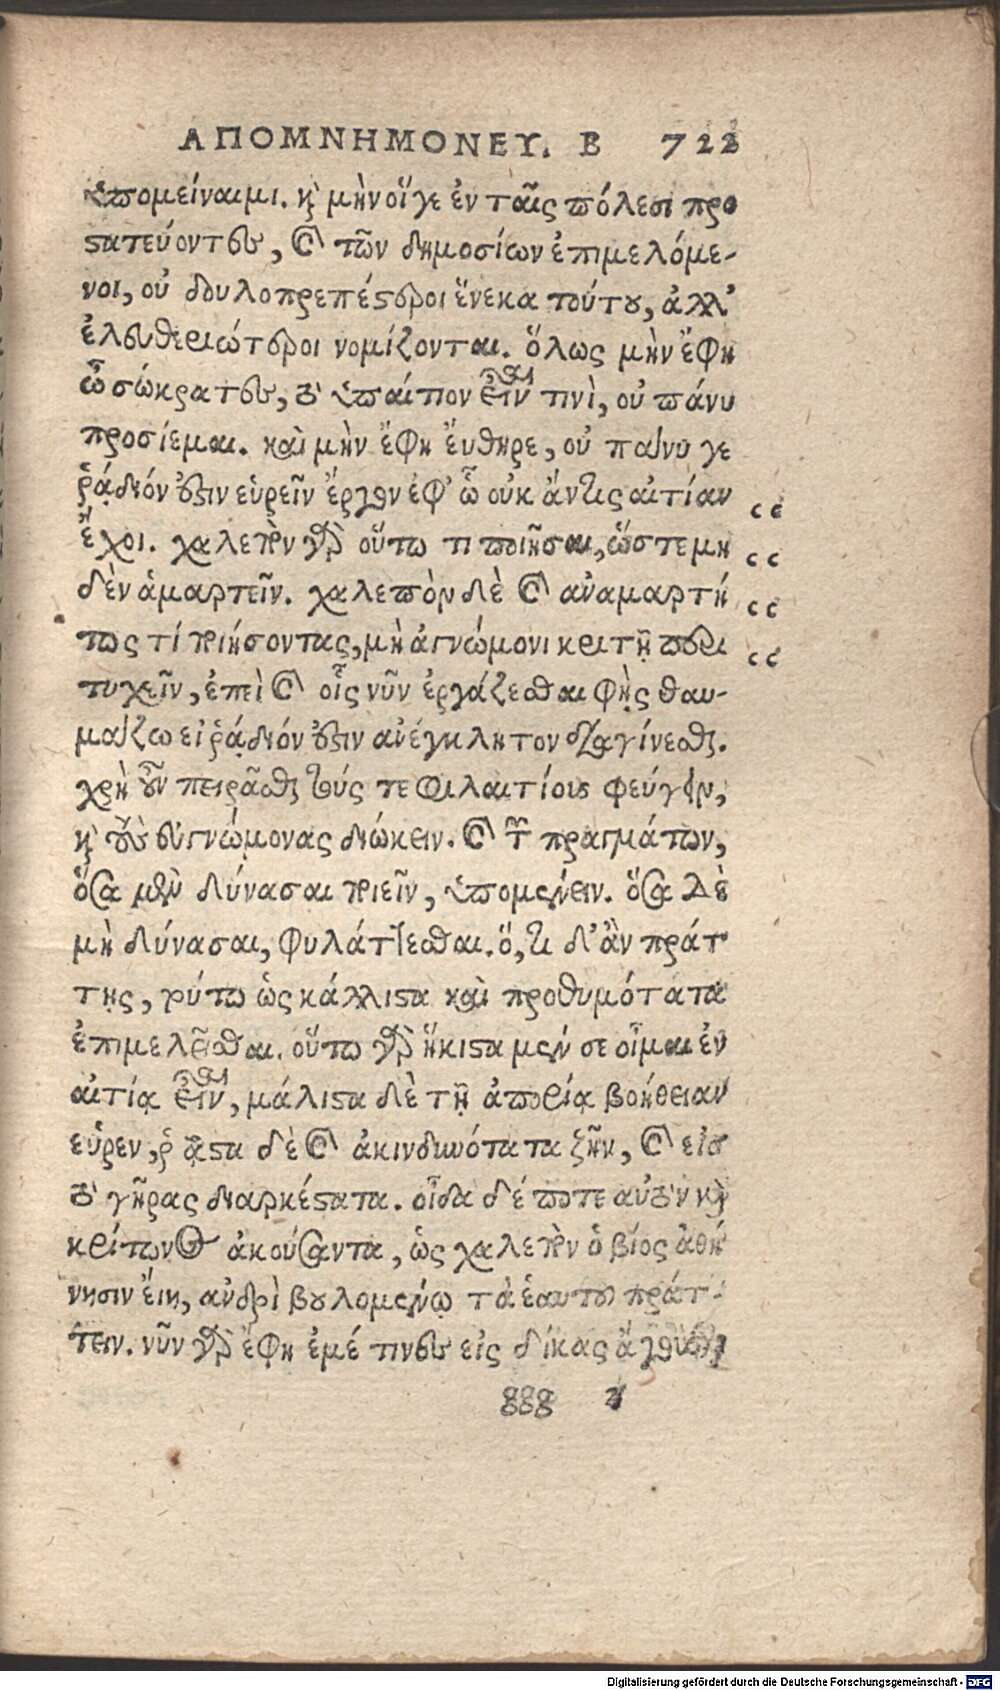 ΑΠΟΜΝΗΜΟΝΕΥ. Β 722
ὑπομείναιμι. καὶ μὴν οἵ γε ἐν ταῖς πόλεσι προ
στατεύοντες, καὶ τῶν δημοσίων ἐπιμελόμε-
νοι, οὐ δουλοπρεπέστεροι ἕνεκα τούτου, ἀλλ'
ἐλευθεριώτεροι νομίζονται. ὅλως μὴν ἔφη
ὦ σώκρατες, τὸ ὑπαίτιον εἶναί τινὶ, οὐ πάνυ
προσίεμαι. καὶ μὴν ἔφη ἔυθηρε, οὐ πάνυ γε
ῥᾴδιόν ἐστιν εὑρεῖν ἔργον ἐφ' ᾧ οὐκ ἄν τις αἰτίαν
ἔχοι. χαλεπὸν γὰρ οὕτω τι ποιῆσαι, ὥστε μη
δὲν ἁμαρτεῖν. χαλεπὸν δὲ καὶ ἀναμαρτή
τως τί ποιήσοντας, μὴ ἀγνώμονι κριτῇ περι
τυχεῖν, ἐπεὶ καὶ οἷς νῦν ἐργάζεσθαι φῂς θαυ-
μάζω εἰ ῥᾴδιόν ἐστιν ἀνέγκλητον διαγίνεσθαι.
χρὴ οὖν πειρᾶσθαι τούς τε φιλαιτίους φεύγειν,
καὶ τοὺς εὐγνώμονας διώκειν. καὶ τῶν πραγμάτων,
ὅσα μὲν δύνασαι ποιεῖν, ὑπομένειν. ὅσα δὲ
μὴ δύνασαι, φυλάττεσθαι. ὅ, τι δ' ἂν πράτ
τῃς, τούτω ὡς κάλλιστα καὶ προθυμότατα
ἐπιμελεῖσθαι. οὕτω γὰρ ἥκιστα μέν σε οἶμαι ἐν
αἰτίᾳ εἶναι, μάλιστα δὲ τῇ ἀπορίᾳ βοήθειαν
εὑρεῖν, ῥᾷστα δὲ καὶ ἀκινδυνότατα ζῆν, καὶ εἰσ
τὸ γῆρας διαρκέστατα. οἶδα δέ ποτε αὐτὸν καὶ
κρίτωνος ἀκούσαντα, ὡς χαλεπὸν ὁ βίος ἀθή
νησιν ἔιη, ἀνδρὶ βουλομένῳ τὰ ἑαυτοῦ πράτ-
τειν. νῦν γὰρ ἔφη ἐμέ τινες εἰς δίκας ἄγουσι
ggg 2
Digitalisierung gefördert durch die Deutsche Forschungsgemeinschaft - DFG